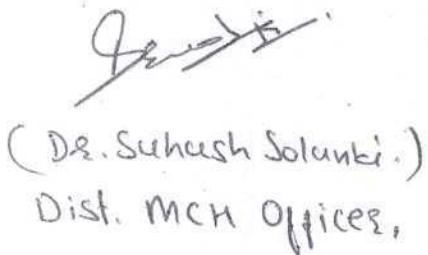 (Dr. Suhash Solanki.)
Dist. MCH Officer,